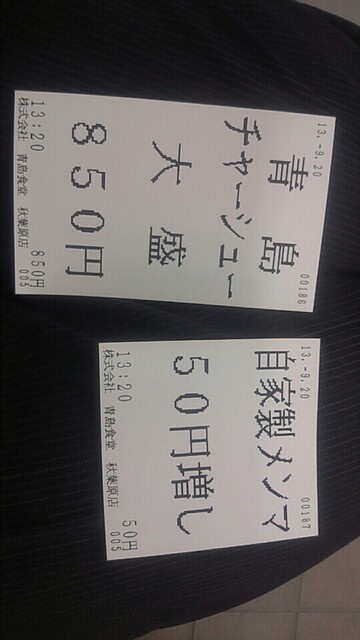 13.-9.20 00186
青島
チャーシュー
大盛
850円
13:20 850円
株式会社 青島食堂 秋葉原店 005
13.-9.20 00187
自家製メンマ
50円増し
13:20 50円
株式会社 青島食堂 秋葉原店 005